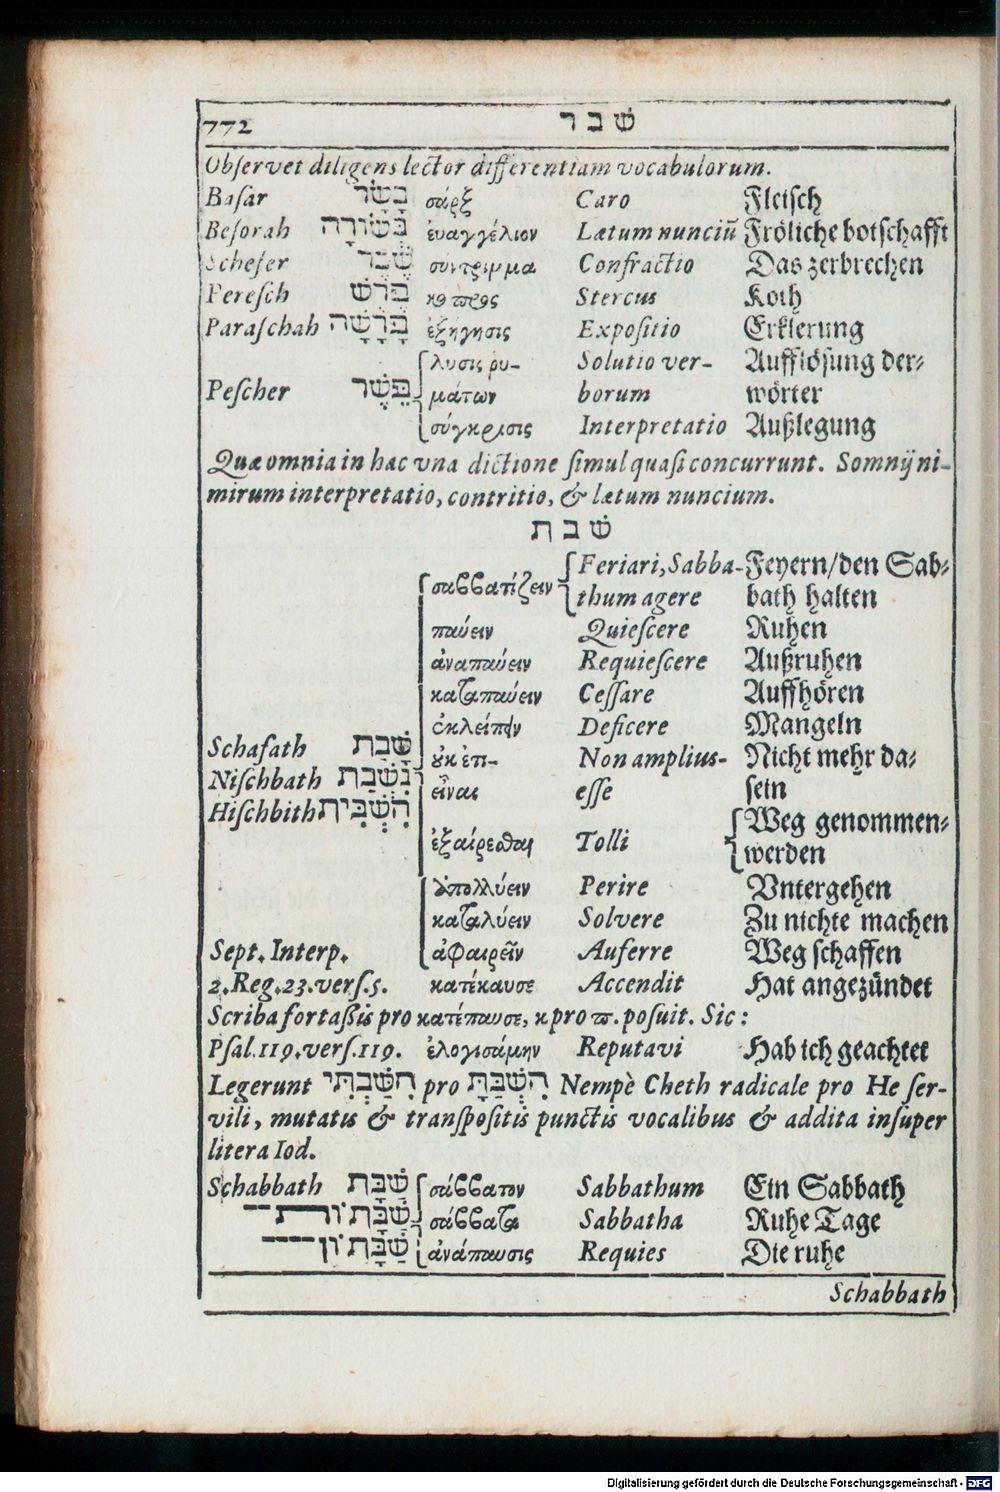 772 שׁבר
Observet diligens lector differentiam vocabulorum.
Basar בָּשָׂר σάρξ Caro Fleisch
Besorah בְּשׂוֹרָה ἐυαγγέλιον Lætum nunciũ Fröliche botschafft
Schefer שֶׁבֶר σύντριμμα Confractio Das zerbrechen
Feresch פֶּרֶשׁ κόπρος Stercus Koth
Paraschah פָּרָשָׁה ἐξήγησις Expositio Erklerung
λυσις ρυ- Solutio ver- Aufflösung der-
Pescher פֵּשֶׁר μάτων borum wörter
σύγκρισις Interpretatio Außlegung
Quæ omnia in hac vna dictione simul quasi concurrunt. Somnij ni-
mirum interpretatio, contritio, & lætum nuncium.
שׁבת
Feriari, Sabba- Feyern/den Sab-
σαββατίζειν thum agere bath halten
παύειν Quiescere Ruhen
ἀναπαύειν Requiescere Außruhen
καταπαύειν Cessare Auffhören
ἐκλείπειν Deficere Mangeln
Schafath שָׁבַת ȣκ ἐτι- Non amplius- Nicht mehr da-
Nischbath נִשְׁבַּת εἶναι esse sein
Hischbith הִשְׁבִּית Weg genommen-
ἐξαίρεσθαι Tolli werden
ἀπολλύειν Perire Vntergehen
καταλύειν Solvere Zu nichte machen
Sept. Interp. ἀφαιρεῖν Auferre Weg schaffen
2. Reg. 23. vers. 5. κατέκαυσε Accendit Hat angezündet
Scriba fortaßis pro κατέπαυσε, κ pro π. posuit. Sic:
Psal. 119. vers. 119. ἐλογισάμην Reputavi Hab ich geachtet
Legerunt חִשַּׁבְתִּי pro הִשְׁבַּתָּ Nempè Cheth radicale pro He ser-
vili, mutatis & transpositis punctis vocalibus & addita insuper
litera Iod.
Schabbath שַׁבָּת σάββατον Sabbathum Ein Sabbath
שַׁבָּתוֹת-- σάββατα Sabbatha Ruhe Tage
שַׁבָּתוֹן---- ἀνάπαυσις Requies Die ruhe
Schabbath
Digitalisierung gefördert durch die Deutsche Forschungsgemeinschaft - DFG